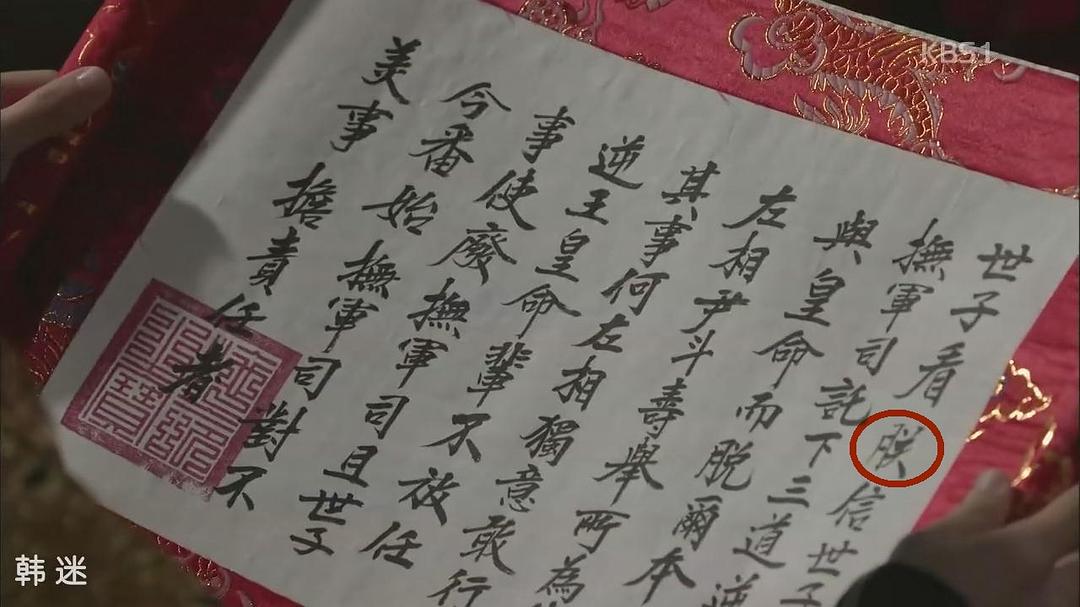 世子看朕信世子
撫軍司託下三道逆
與皇命而脫爾本
左相尹斗壽舉所為
其事何左相獨意敢行
逆王皇命輩不放任
事使廢撫軍司且世子
今番始撫軍司對不
美事擔責任者
KBS1
韩迷